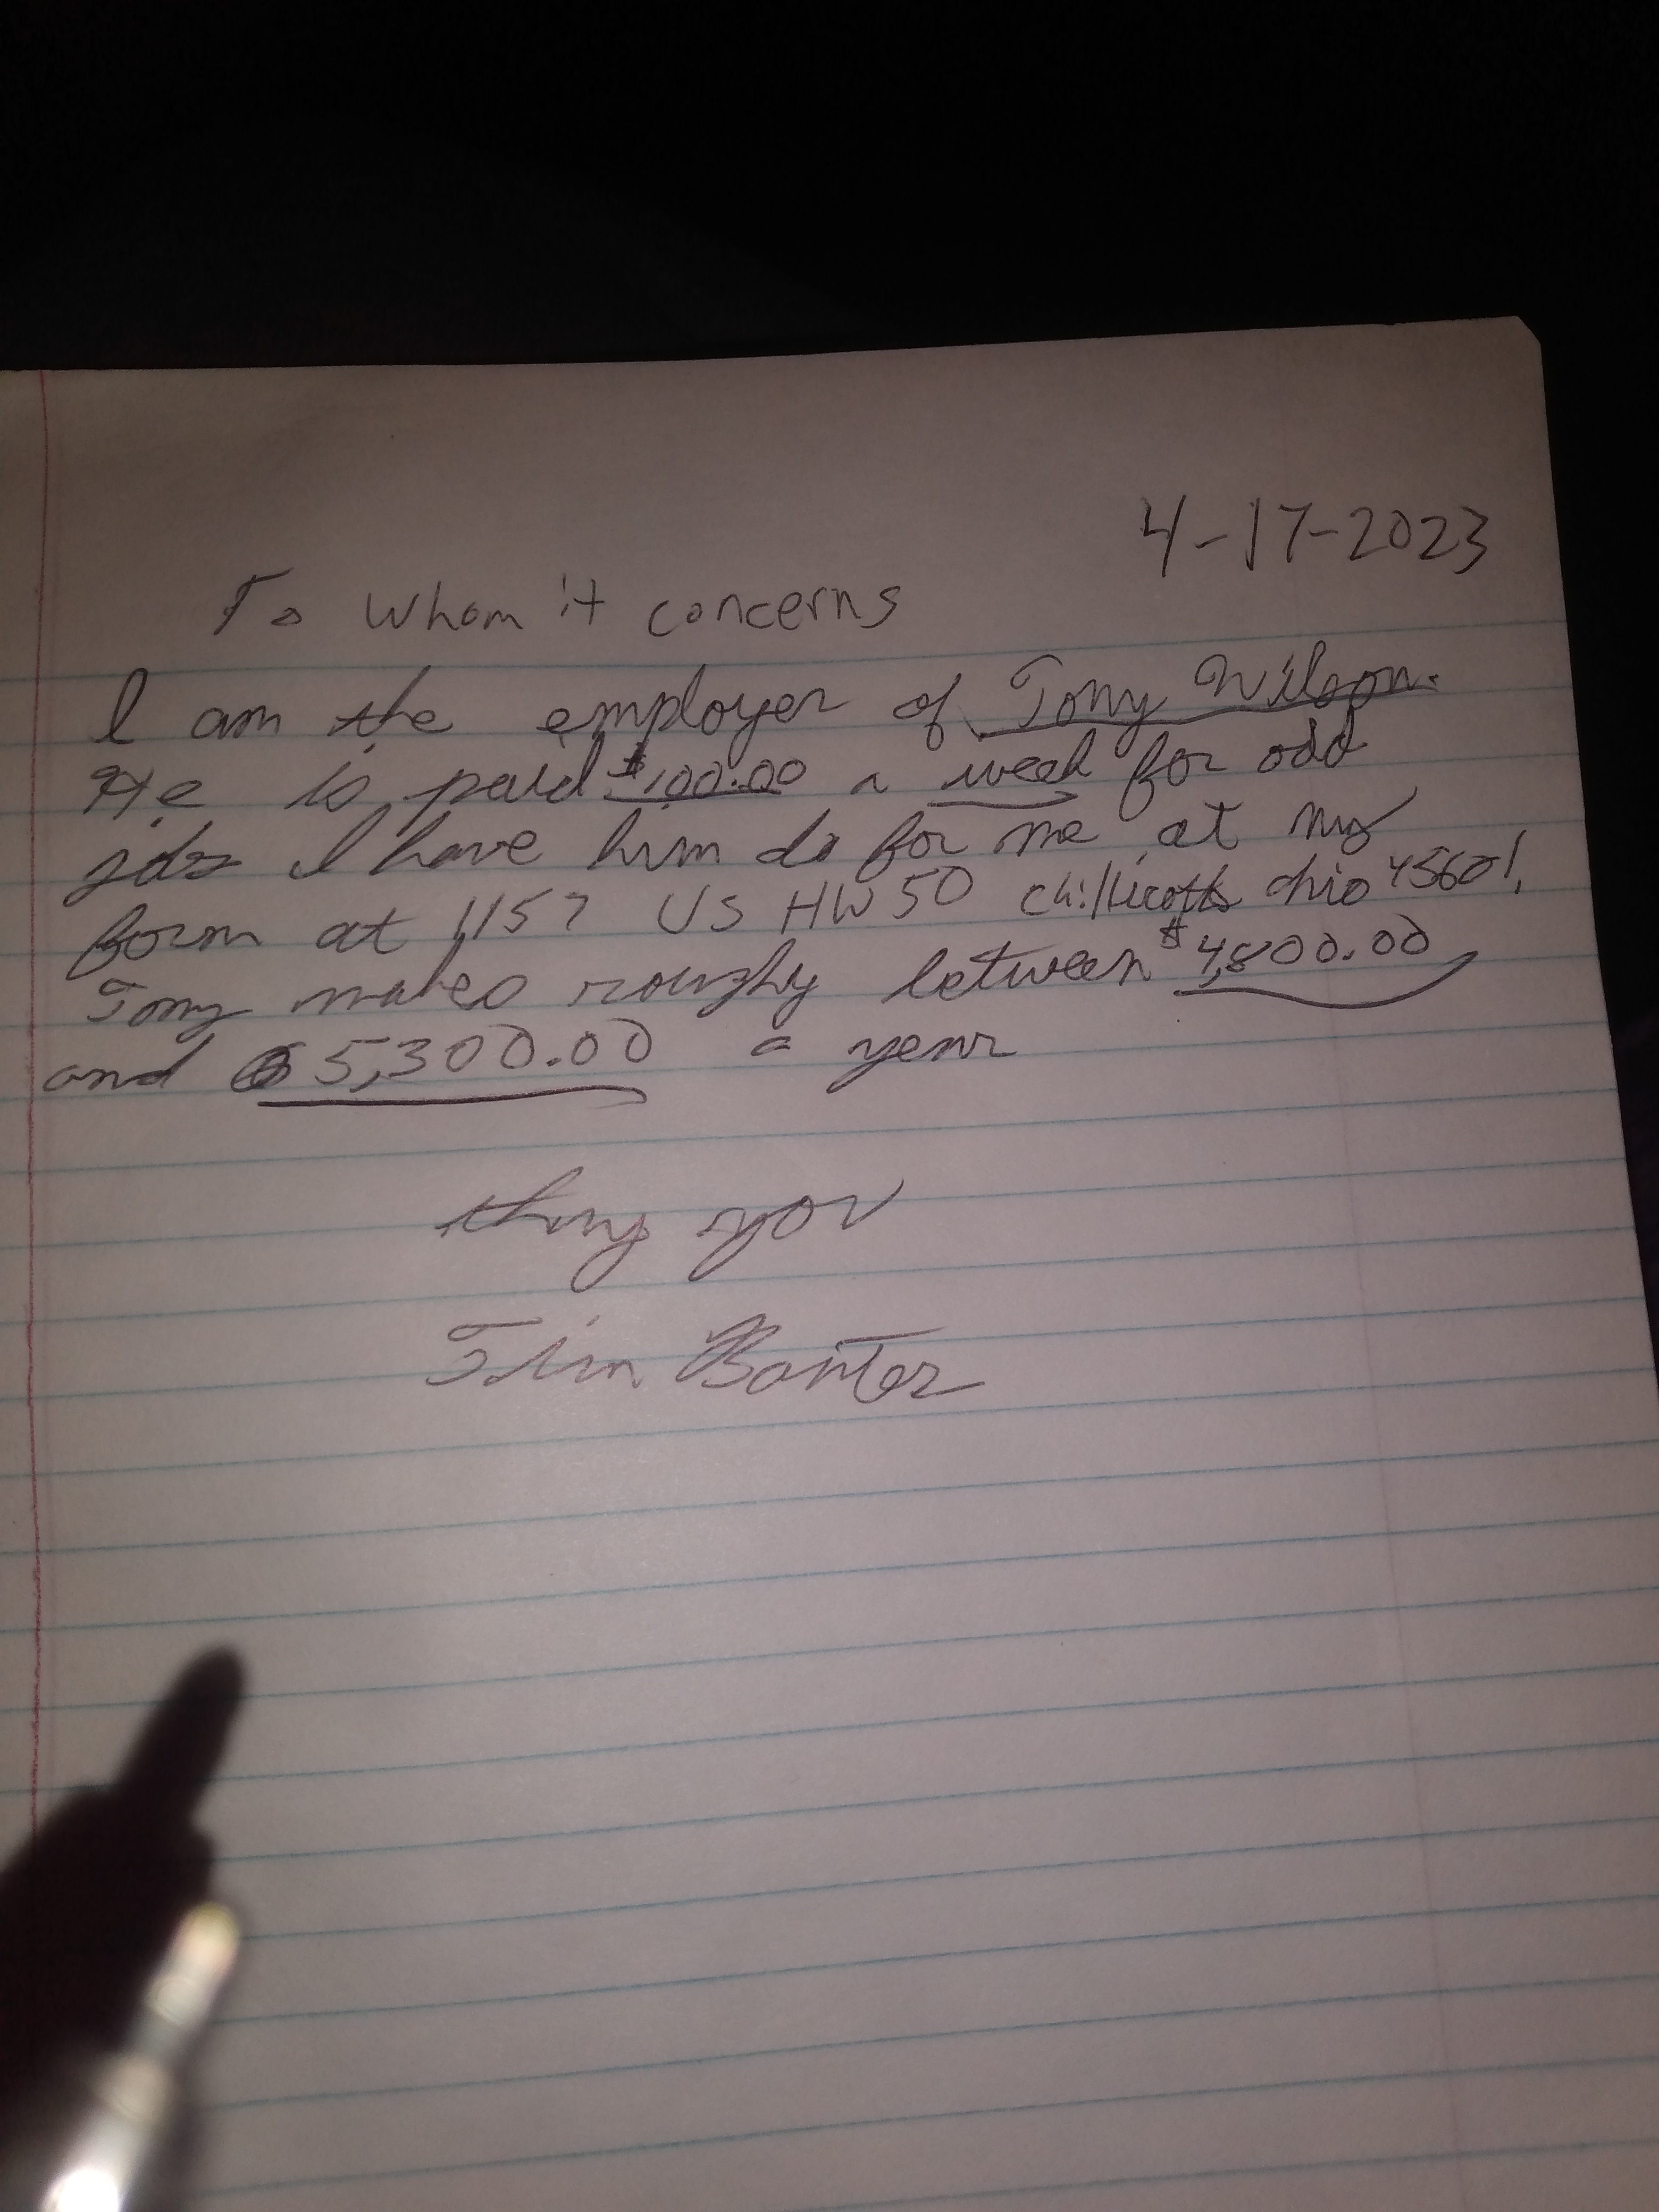 4-17-2023
To Whom it concerns
I am the employer of Tony Wilson.
He is paid $100.00 a week for odd
jobs I have him do for me at my
farm at 1157 US HW 50 Chillicothe Ohio 45601.
Tony makes roughly between $4,800.00
and $5,300.00 a year
thany you
Tim